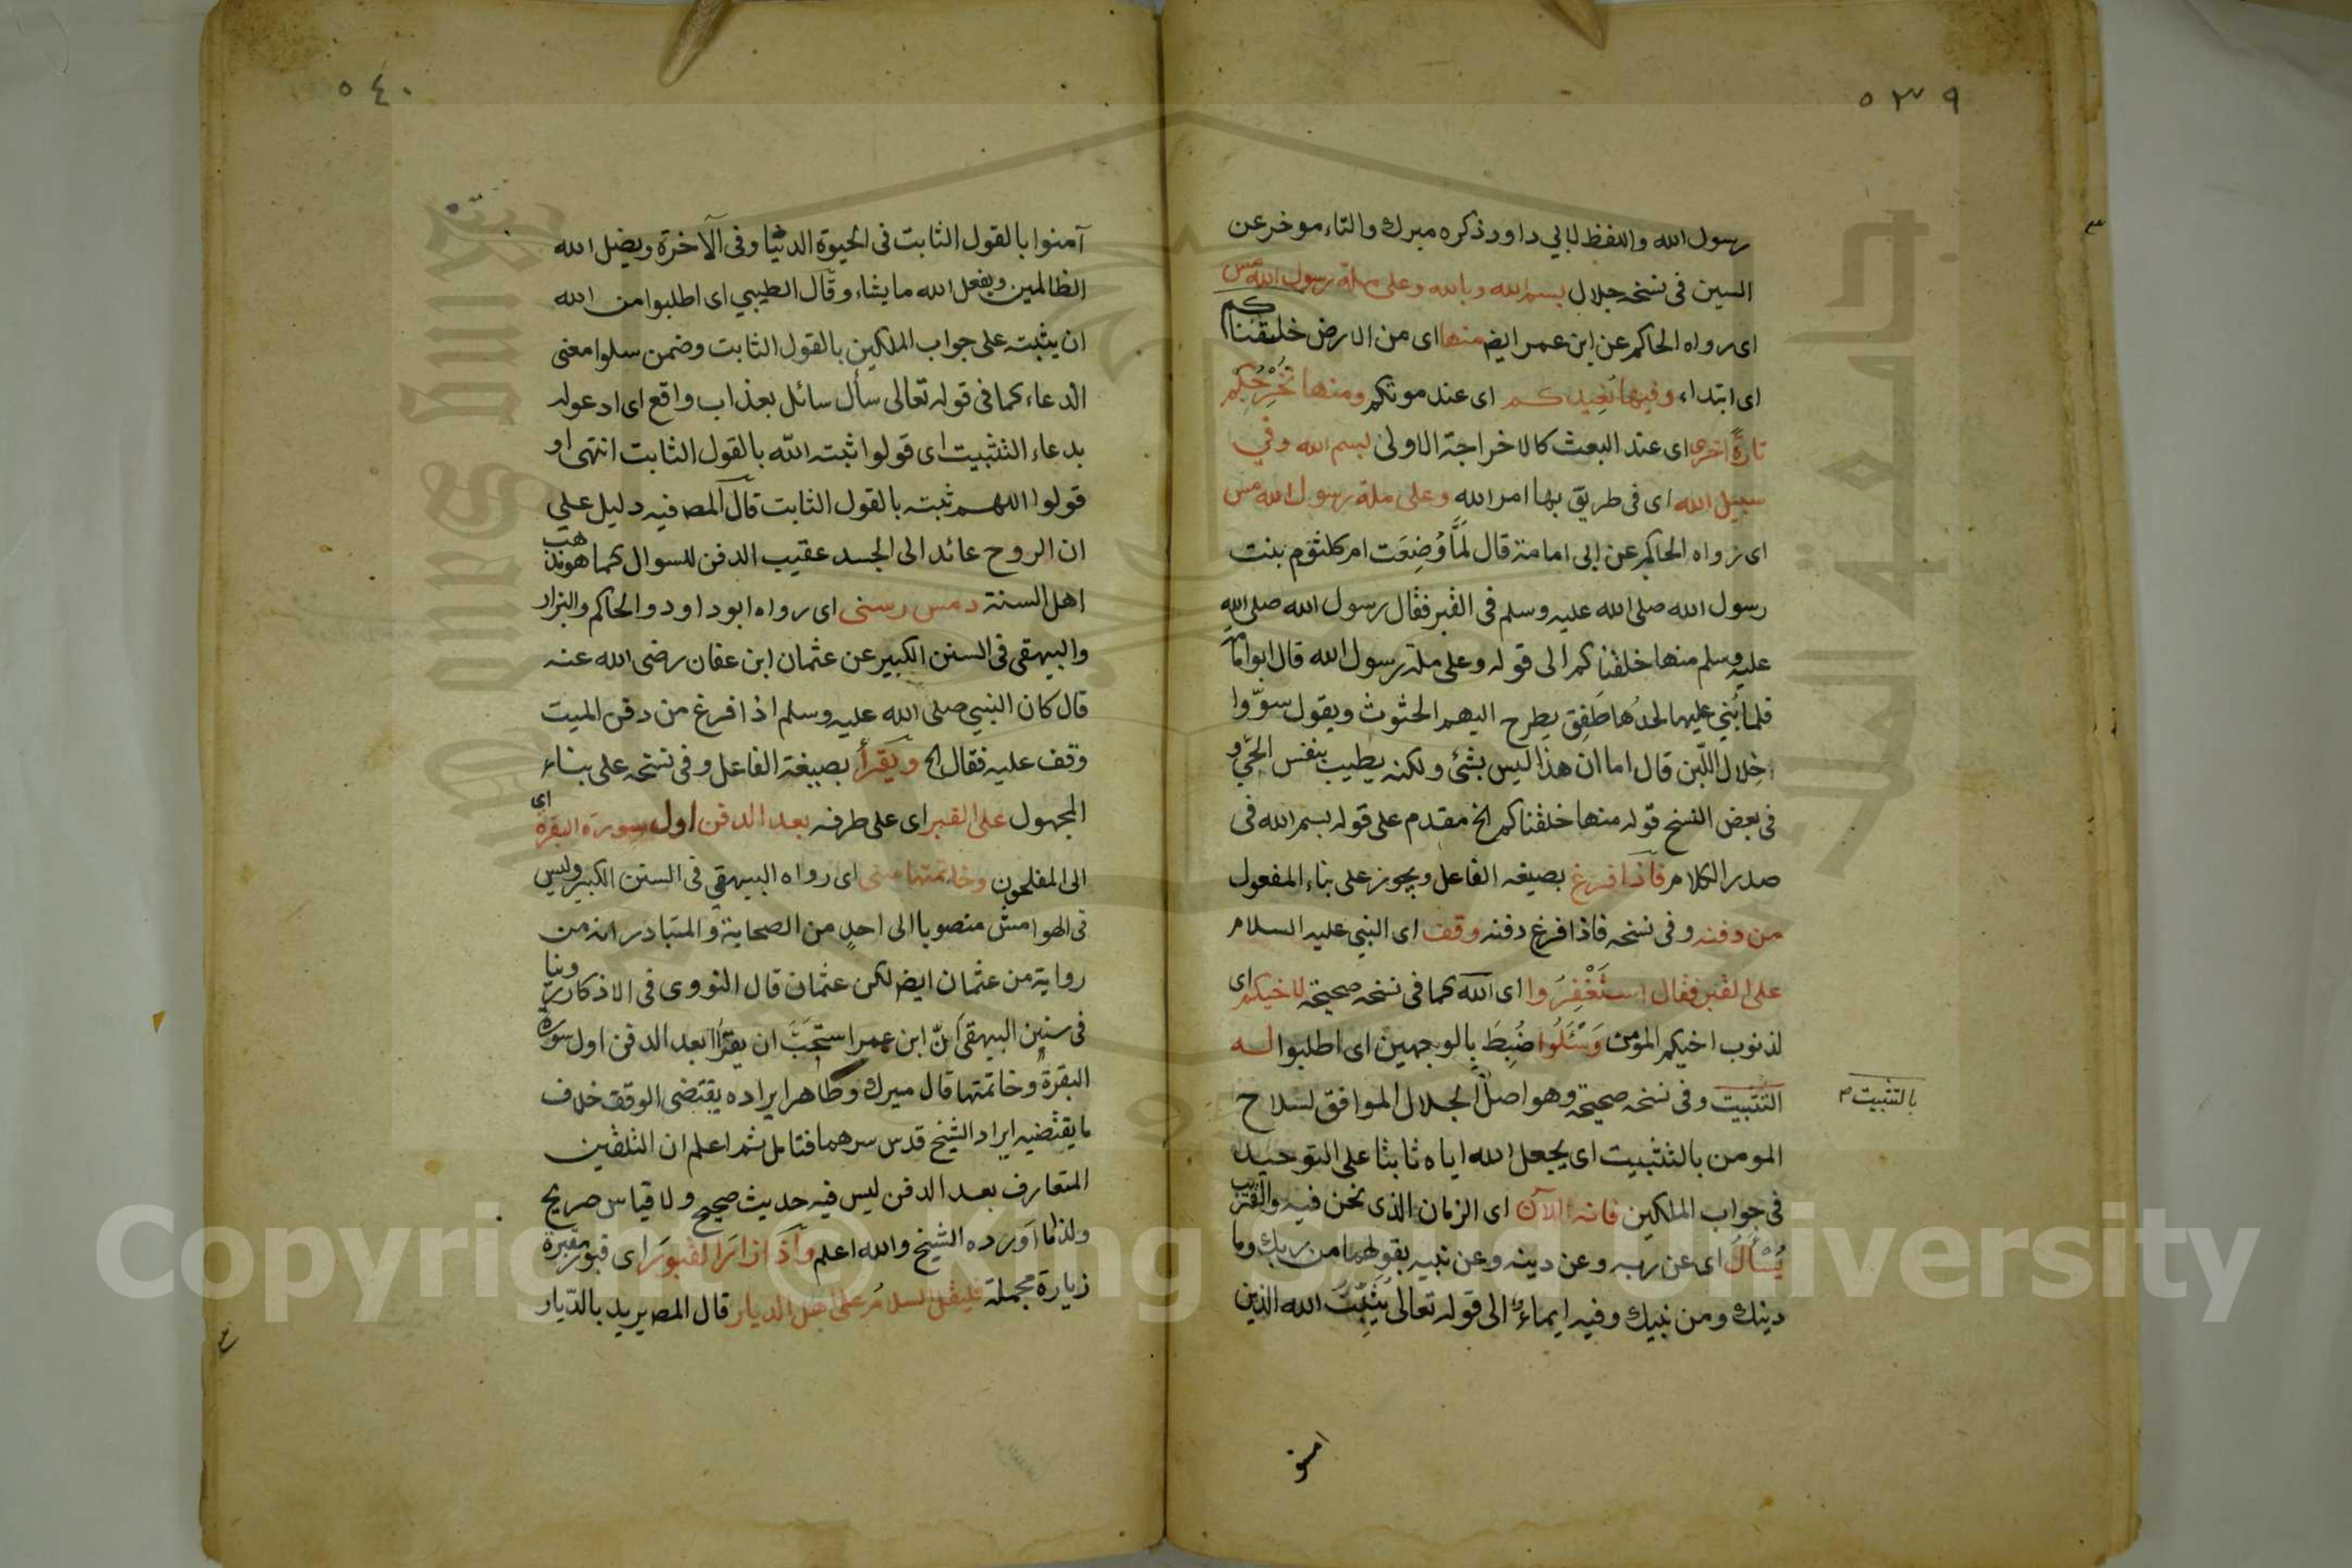 ٥٣٩
رسول الله واللفظ لابي داود ذكره ميرك والتاء موخر عن
السين فى نسخه جلال بسم الله وبالله وعلى ملة رسول الله مس
اى رواه الحاكم عن ابن عمر ايض منها اى من الارض خلقناكم
اى ابتداء وفيها نُعِيدكم اى عند موتكم ومنها نُخْرِجُكم
تارةً اخرى اى عند البعث كالاخراجة الاولى بسم الله وفي
سبيل الله اى فى طريق بها امر الله وعلى ملة رسول الله مس
اى رواه الحاكم عن ابى امامة قال لَمَّا وُضِعَت ام كلثوم بنت
رسول الله صلى الله عليه وسلم فى القبر فقال رسول الله صلى الله
عليه وسلم منها خلقناكم الى قوله وعلى ملة رسول الله قال ابو امامة
فلما بُنِي عليها لحدُها طَفِقَ يطرح اليهم الحثوث ويقول سوّوا
خِلال اللّبن قال اما ان هذا ليس بشئ ولكنه يطيب بنفس الحيّ و
فى بعض النسخ قوله منها خلقناكم الخ مقدم على قوله بسم الله فى
صدر الكلام فاذا فرغ بصيغه الفاعل ويجوز على بناء المفعول
من دفنه وفى نسخه فاذا فرغ دفنه وقف اى النبي عليه السلام
على القبر فقال اسْتَغْفِرُوا اى الله كما فى نسخه صحيحة لاخيكم اى
لذنوب اخيكم المؤمن وَسْئَلُوا ضُبِطَ بالوجهين اى اطلبوا له
التثبيت وفى نسخه صحيحة وهو اصل الجلال الموافق لسلاح
بالتثبيت م
المومن بالتثبيت اى يجعل الله اياه ثابتا على التوحيد
فى جواب الملكين فانه الآن اى الزمان الذى نحن فيه والقريب
يُسْأَلُ اى عن ربه وعن دينه وعن نبيه بقولهما من ربك وما
دينك ومن نبيك وفيه ايماء الى قوله تعالى يُثَبِّتُ الله الذين
امنو
٥٤٠
آمنوا بالقول الثابت فى الحيوة الدنيا وفى الآخرة ويضل الله
الظالمين ويفعل الله ما يشاء وقال الطيبي اى اطلبوا من الله
ان يثبته على جواب الملكين بالقول الثابت وضمن سلوا معنى
الدعاء كما فى قوله تعالى سأل سائل بعذاب واقع اى ادعوله
بدعاء التثبيت اى قولوا ثبته الله بالقول الثابت انتهى او
قولوا اللهم ثبته بالقول الثابت قال المص فيه دليل على
ان الروح عائد الى الجسد عقيب الدفن للسوال كما هو مذهب
اهل السنة د مس ر سنى اى رواه ابو داود والحاكم والبزار
والبيهقى فى السنن الكبير عن عثمان ابن عفان رضى الله عنه
قال كان النبي صلى الله عليه وسلم اذا فرغ من دفن الميت
وقف عليه فقال الخ ويَقرأ بصيغة الفاعل وفى نسخه على بناء
المجهول على القبر اى على طرفه بعد الدفن اول سورة البقرة اى
الى المفلحون وخاتمتها سنى اى رواه البيهقي فى السنن الكبير وليس
فى الهوامش منصوبا الى احدٍ من الصحابة والمتبادر انه من
رواية من عثمان ايض لكن عثمان قال النووى فى الاذكار روينا
فى سنن البيهقى انّ ابن عمر استحَبَّ ان يقرأ بعد الدفن اول سورة
البقرة وخاتمتها قال ميرك وظاهر ايراده يقتضى الوقف خلاف
ما يقتضيه ايراد الشيخ قدس سرهما فتامل ثم اعلم ان التلقين
المتعارف بعد الدفن ليس فيه حديث صحيح ولا قياس صريح
ولذا ما اَورده الشيخ والله اعلم واذا زار القبور اى قبور مقبرة
زيارة مجملة فليقل السلامُ على اهل الديار قال المص يريد بالدّيار
Copyright © King Saud University
جامعة الملك سعود